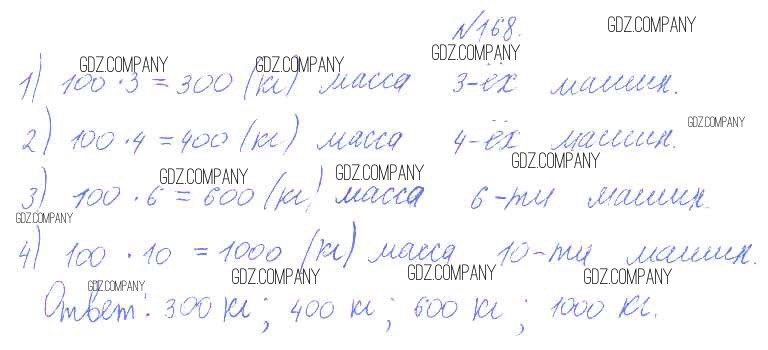 №168. GDZ.COMPANY
GDZ.COMPANY GDZ.COMPANY GDZ.COMPANY
1) 100 · 3 = 300 (кг) масса 3-ёх машин.
GDZ.COMPANY
2) 100 · 4 = 400 (кг) масса 4-ёх машин.
GDZ.COMPANY GDZ.COMPANY GDZ.COMPANY
3) 100 · 6 = 600 (кг) масса 6-ти машин.
GDZ.COMPANY
4) 100 · 10 = 1000 (кг) масса 10-ти машин.
GDZ.COMPANY GDZ.COMPANY GDZ.COMPANY GDZ.COMPANY
Ответ: 300 кг; 400 кг; 600 кг; 1000 кг.